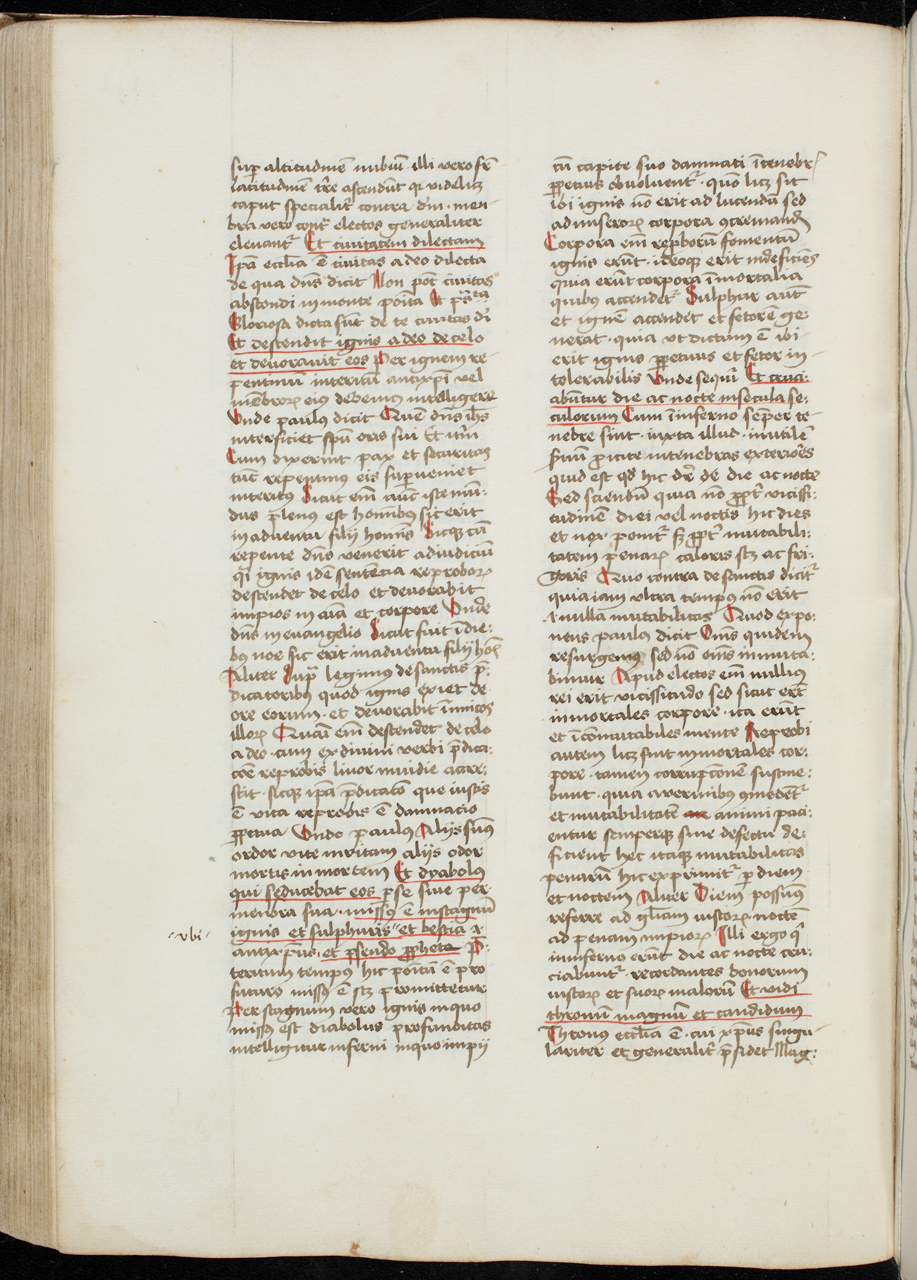 sup altitudinē nubiū illi vero sr̄
latitudinē tr̄re ascendūt qr videlicz
caput specialit̾ contra dn̄m · men-
bra vero contͣ electos generaliter
eleuant̾ Et ciuitatem dilectam
Ip̄a eccl̄ia ē ciuitas a deo dilecta
de qua dn̄s dicit Non pot̄ ciuitas
abscondi in monte poīta Et ps̄ta
Gloriosa dicta sūt de te ciuitas dī
Et descendit ignis a deo de celo
et deuorauit eos Per ignem re-
pentinū interitū antixp̄i vel
mēbrorꝝ eius debemus intelligere
Vnde paulus dicit Quē dn̄s ih̄s
interficiet spū oris sui Et itm̄
Cum dixerint pax et securitas
tūc repentinus eis superueniet
interitus Sicut em̄ nūc iste mūn-
dus plenus est hoīnibus sic erit
in aduentu filij hoīnis Sicqꝫ cū
repente dn̄s venerit ad iudiciū
qͥ ignis idē sentencia reproborꝝ
descendet de celo et deuorabit
impios in aīa et corpore Vnde
dn̄s in euangelio Sicut fuit ī die-
bꝰ noe sic erit in aduentu filij hoīs
Aliter Supͣ legimus de sanctis p̄-
dicatoribus quod ignis exiet de
ore eorum · et deuorabit īimicos
illorꝝ Quasi em̄ descendet de celo
a deo · cum ex diuini verbi p̄dica-
cōne reprobis liuor inuidie accre-
scit · sicqꝫ ip̄a p̄dicatō que iustis
ē vita reprobis ē damnacio
ꝑpetua Vnde paulus Alijs sumꝰ
ordor vite in vitam alijs odor
mortis in mortem Et dyabolus
qui seducebat eos ꝑ se siue per
menbra sua · missus ē in stagnū
ignis et sulphuris" et bestia ·i·
-vbi-
antixp̄us · et pseudo ꝓpheta P̄-
teritum tempus hic poītū ē pro
futuro missus ē scz promittetur
Per stagnum vero ignis in quo
missus est diabolus profunditas
intelligitur inferni in quo impij
cū capite suo damnati ī tenebr̄
ꝑpetuis obuoluent̾ · quō licz sit
ibi ignis nō erit ad lucendū sed
ad miserorꝝ corpora ꝯcremandū
Corpora em̄ reproborū fomentū
ignis erūt · ideoqꝫ erit indeficiēs
quia erūt corpora īmortalia
quibus accendet̾ Sulphur aūt
et ignē accendet et fetorē ge-
nerat · quia vt dictum ē ibi
erit ignis ꝑpetuus et fetor in-
tolerabilis Vnde sequit̾ Et cruci-
abūtur die ac nocte in secula se-
culorum Cum ī inferno semper te-
nebre sint · iuxta illud · inutilē
s̄uū proicite in tenebras exteriōes
quid est qd hic dr̄ de die ac nocte
Sed sciendū quia nō ꝓpt̾ vicissi-
tudinē diei vel noctis hic dies
et nox ponit̾ sꝫ ꝓpt̾ mutabili-
tatem penarꝝ caloris scz ac fri-
goris Quo contra de sanctis dicit̾
quia iam vltra tempus nō erit
·i· nulla mutabilitas Quod expo-
nens paulus dicit Om̄s quidem
resurgemꝰ sed nō om̄s inmuta-
bimur Apud electos em̄ nullius
rei erit vicissitudo sed sicut erūt
inmortales corpore · ita erūt
et īcōmutabiles mente Reprobi
autem licz sint inmortales cor-
pore · tamen corrupcōnem sustine-
bunt · quia a vermibus ꝯmedent̾
et mutabilitatē animi paci-
entur semperqꝫ sine defectu de-
ficient hec itaqꝫ mutabilitas
penarū hic exprimit̾ ꝑ diem
et noctem Aliter Diem possumꝰ
referre ad glīam iustorꝝ noctē
ad penam impiorꝝ Illi ergo qͥ
in inferno erūt die ac nocte cru-
ciabunt̾ · recordantes bonorum
iustorꝝ et suorꝝ malorū Et vidi
thronū magnū et candidum
Thronus eccl̄ia ē · cui xp̄us singu-
lariter et generalit̾ p̄sidet Mag-